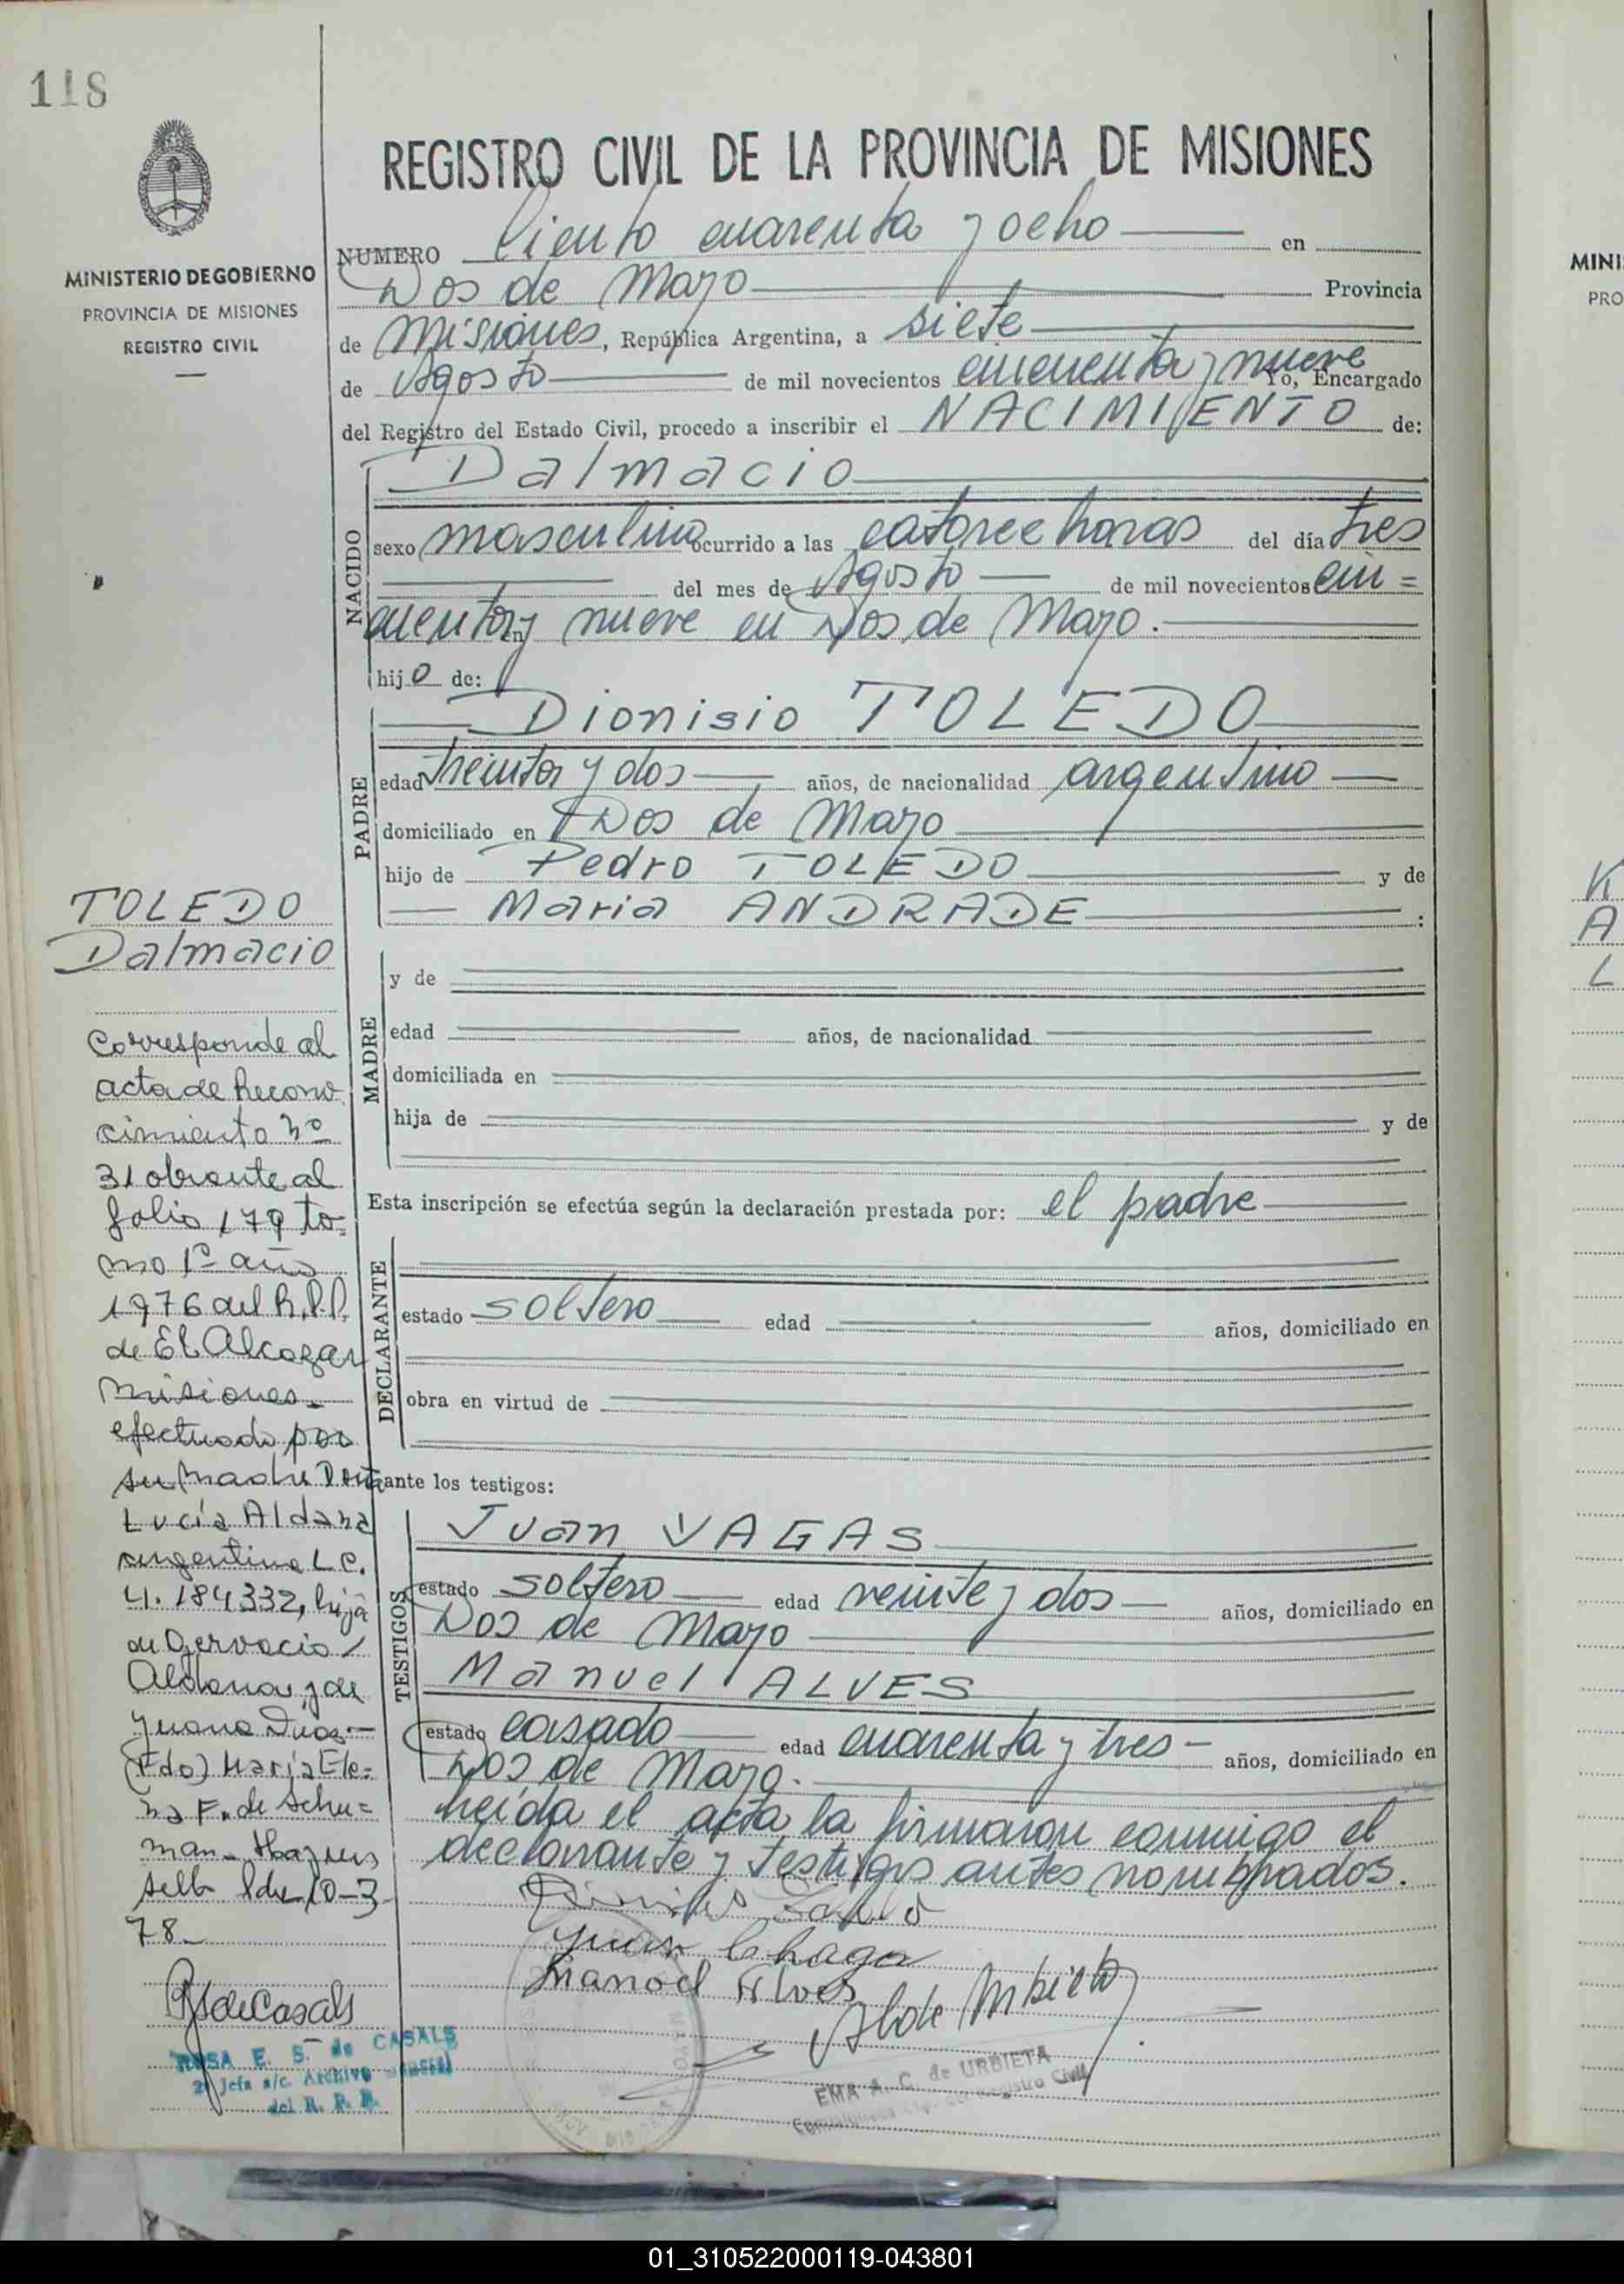 118
REGISTRO CIVIL DE LA PROVINCIA DE MISIONES
MINISTERIO DE GOBIERNO
PROVINCIA DE MISIONES
REGISTRO CIVIL
NUMERO Ciento cuarenta y ocho en
Dos de Mayo Provincia
de Misiones, República Argentina, a siete
de Agosto de mil novecientos cincuenta y nueve Yo, Encargado
del Registro del Estado Civil, procedo a inscribir el NACIMIENTO de:
NACIDO
Dalmacio
sexo masculino ocurrido a las catorce horas del día tres
del mes de Agosto de mil novecientos cin=
cuenta y nueve en Dos de Mayo.
hijo de:
PADRE
Dionisio TOLEDO
edad treinta y dos años, de nacionalidad argentino
domiciliado en Dos de Mayo
hijo de Pedro TOLEDO y de
Maria ANDRADE :
MADRE
y de
edad años, de nacionalidad
domiciliada en
hija de y de
Esta inscripción se efectúa según la declaración prestada por: el padre
DECLARANTE
estado soltero edad años, domiciliado en
obra en virtud de
ante los testigos:
TESTIGOS
Juan VAGAS
estado soltero edad veinte y dos años, domiciliado en
Dos de Mayo
Manuel ALVES
estado casado edad cuarenta y tres años, domiciliado en
Dos de Mayo.
Leída el acta la firmaron conmigo el
declarante y testigos antes nombrados.
Juan Chaga
Manoel Alves
EMA A. C. de URBIETA
Registro Civil
TOLEDO
Dalmacio
Corresponde al
acta de Recono
cimiento nº
31 obrante al
folio 179 to=
mo 1º año
1976 del R.P.P.
de El Alcazar
Misiones
efectuado por
su madre Doña
Lucía Aldana
argentina L.C.
4.184332, hija
de Gervacio
Aldana y de
Juana
(Fdo) María Ele=
na F. de Schu=
man.
sello 10-3-
78.
RdeCasals
ROSA E. S. de CASALS
2ª Jefa a/c. Archivo General
del R. P. P.
MINI
PRO
K
A
L
01_310522000119-043801